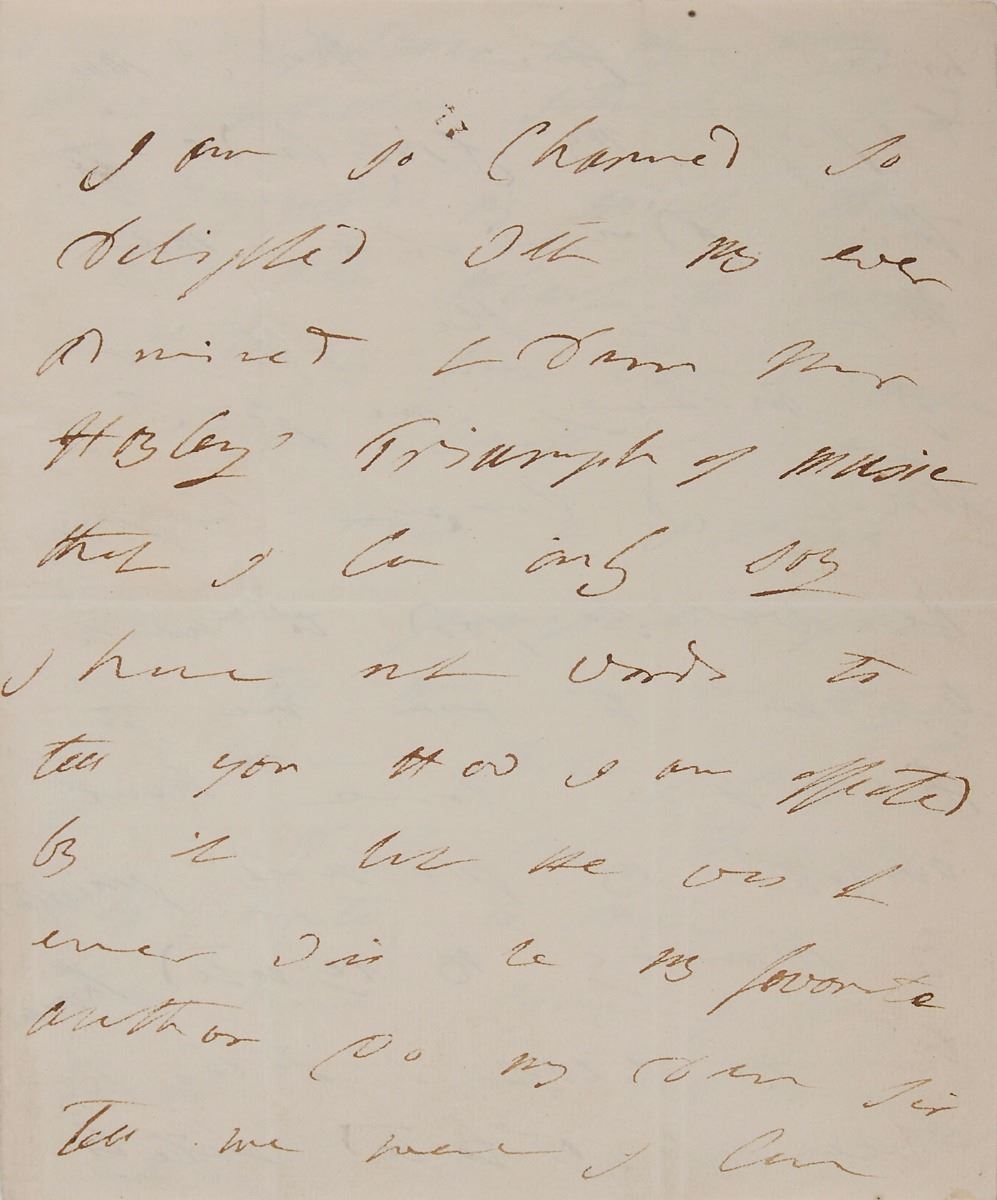 I am so Charmed so
Delighted With my ever
admired & Dear Mr
Hayleys Triumph of music
that I can only say
I have not words to
tell you How I am affected
by it but He was &
ever Will be my favorite
author Do my Dear Sir
Tell me were I can